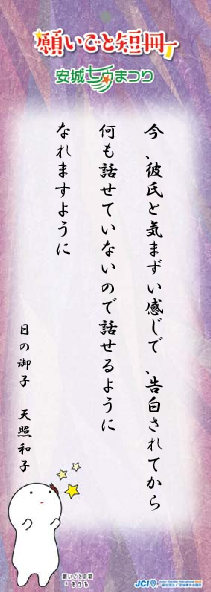 願いごと短冊
安城七夕まつり
今、彼氏と気まずい感じで、告白されてから
何も話せていないので話せるように
なれますように
日の御子 天照和子
JCI